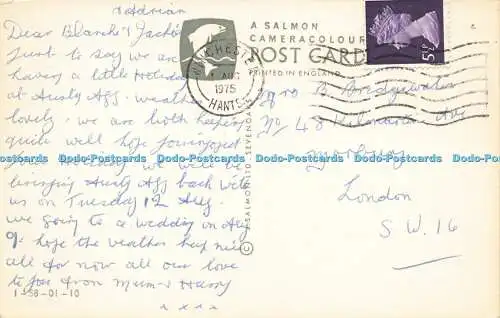 & Adrian
Dear Blanche & Jack
Just to say we are
having a little Holiday
at Austy Aff. weather
lovely. we are both keeping
quite well hope
we will be
bringing Austy Aff back with
us on Tuesday 12 Aug.
we going to a wedding on Aug
9. hope the weather
all for now all our love
to you from Mum & Harry
x x x x
1-58-01-10
A SALMON
CAMERACOLOUR
POST CARD
PRINTED IN ENGLAND
AUG
1975
HANTS
© SALMON LTD · SEVENOAKS
5½
Mrs B Bridgewater
No 48
London
S.W.16
Dodo-Postcards Dodo-Postcards Dodo-Postcards Dodo-Postcards Dodo-Postcards Dodo-Postcards